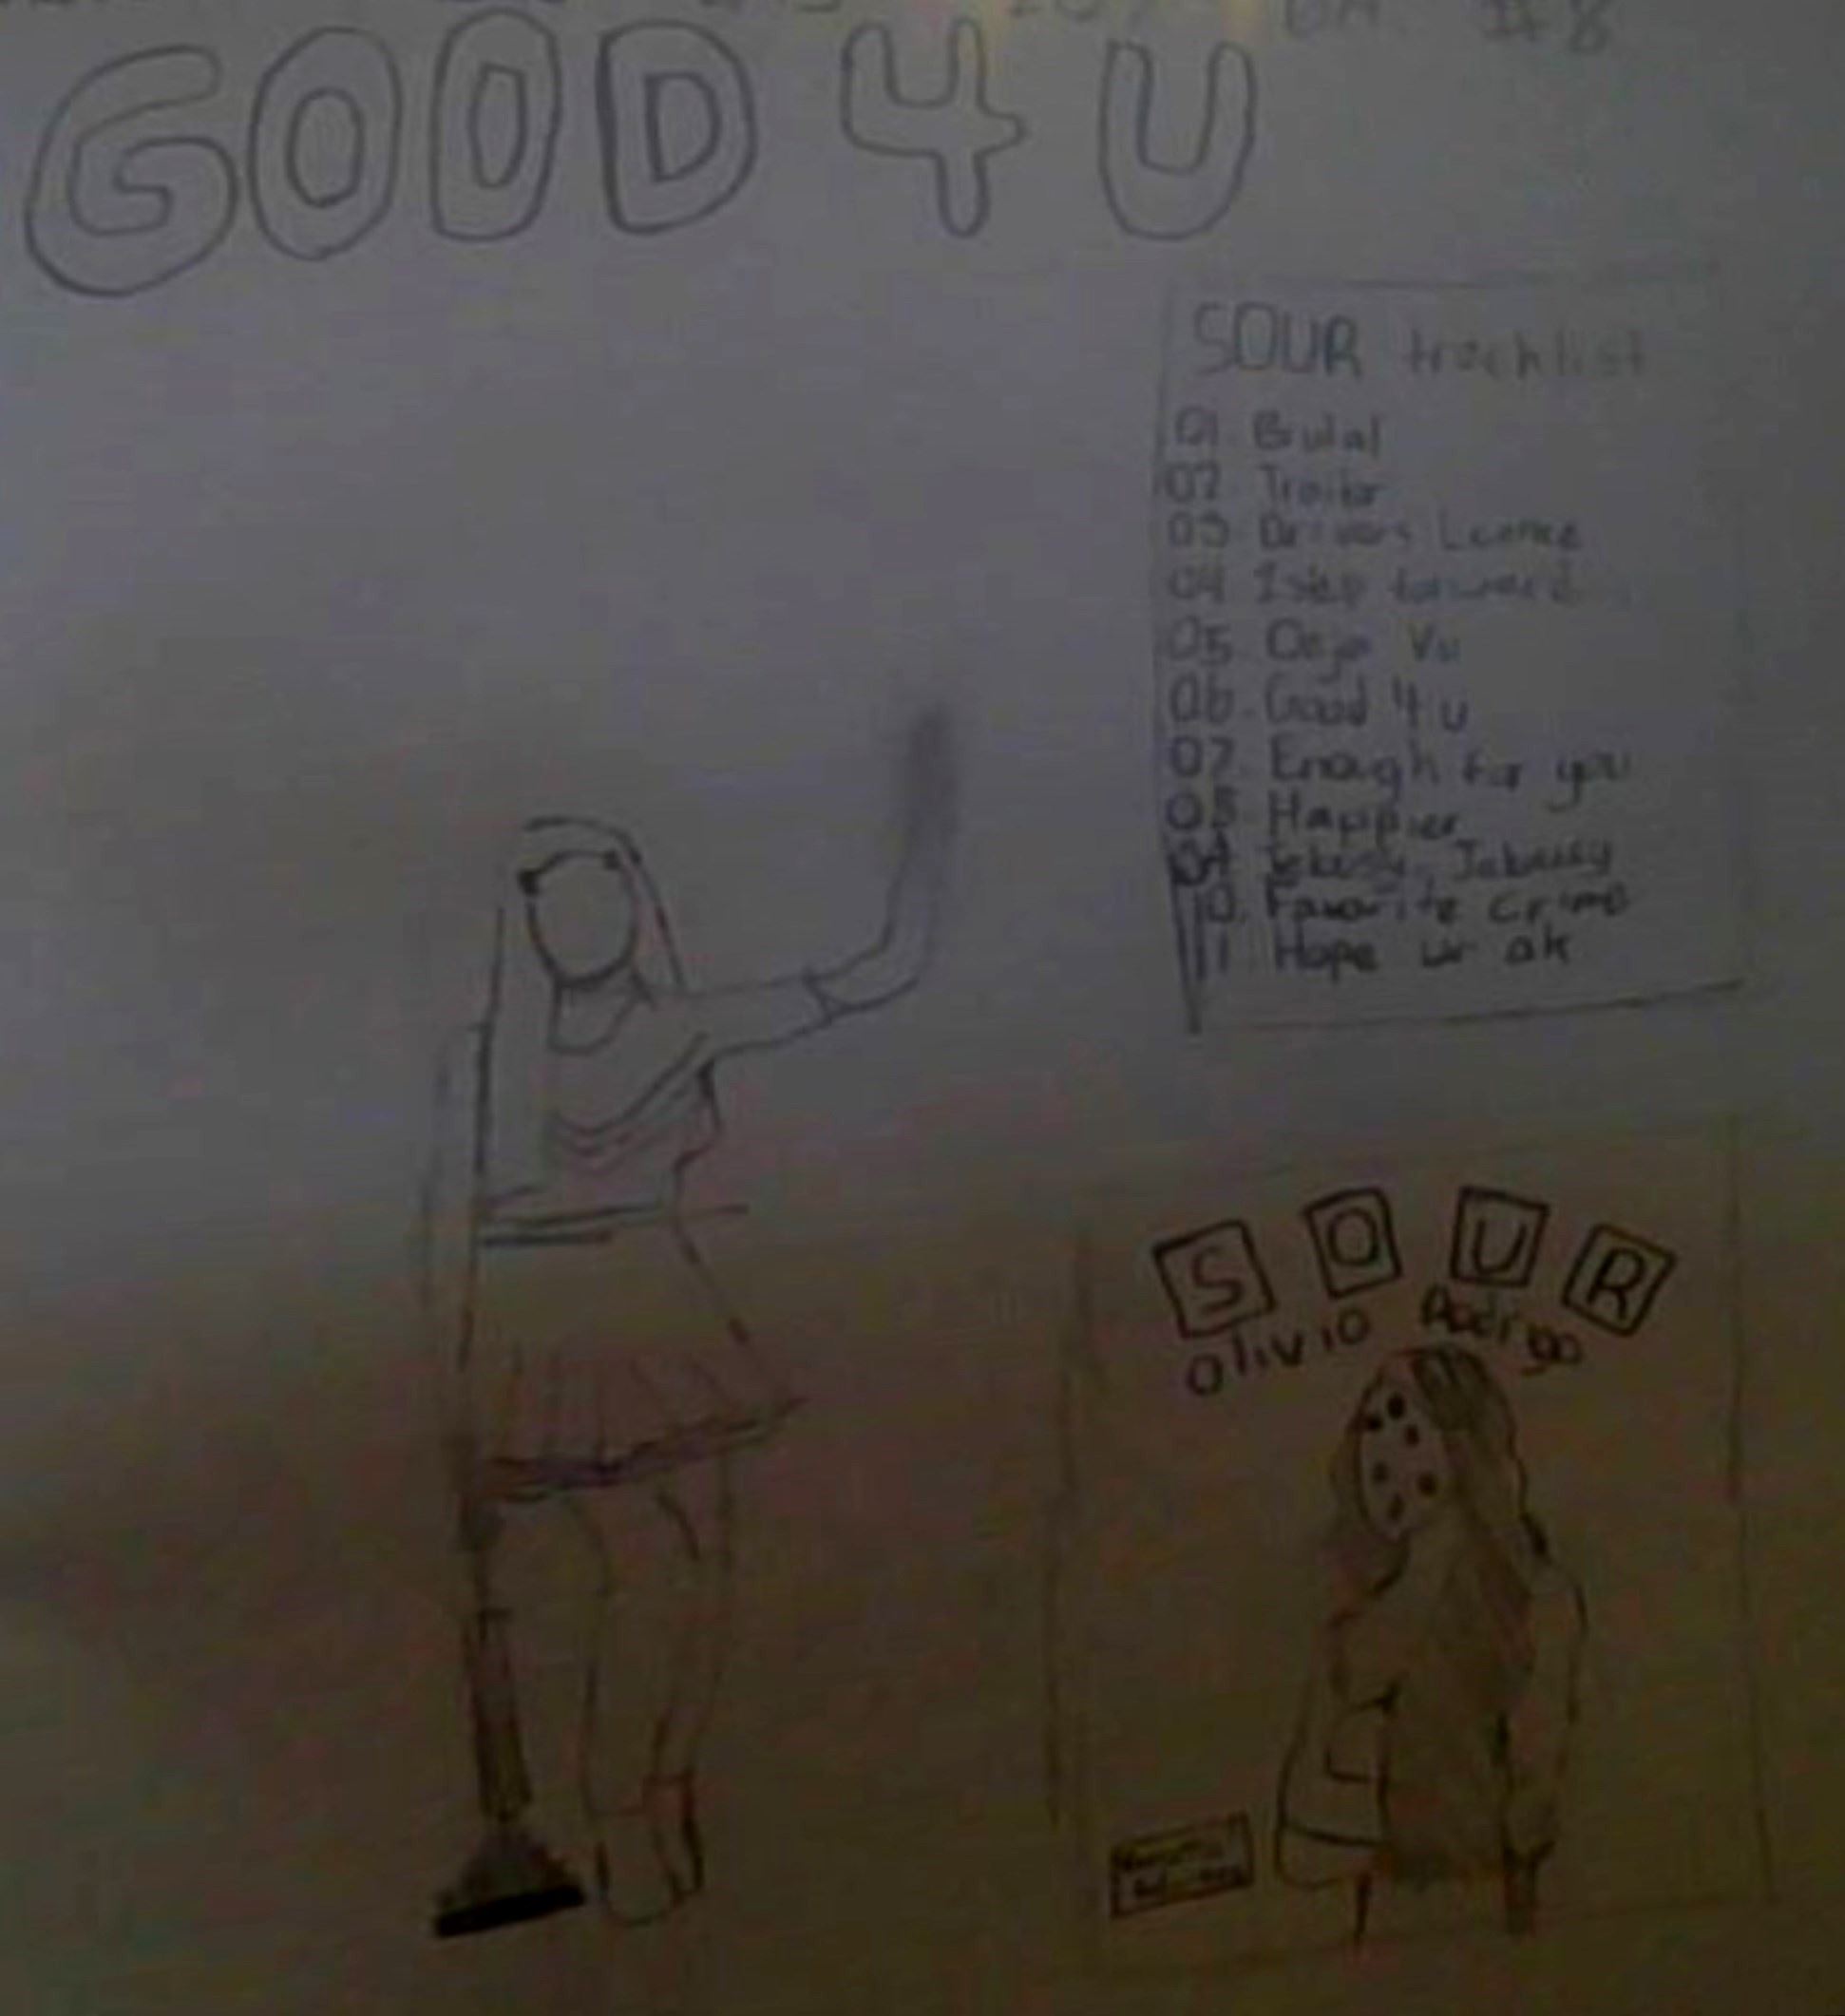 #8
GOOD 4 U
SOUR tracklist
01. Brutal
02. Traitor
03. Drivers License
04 1step forward
05. Deja Vu
06. Good 4 u
07. Enough for you
08. Happier
09 Jelousy, Jelousy
10. Favorite crime
11. Hope ur ok
SOUR
Olivia Rodrigo